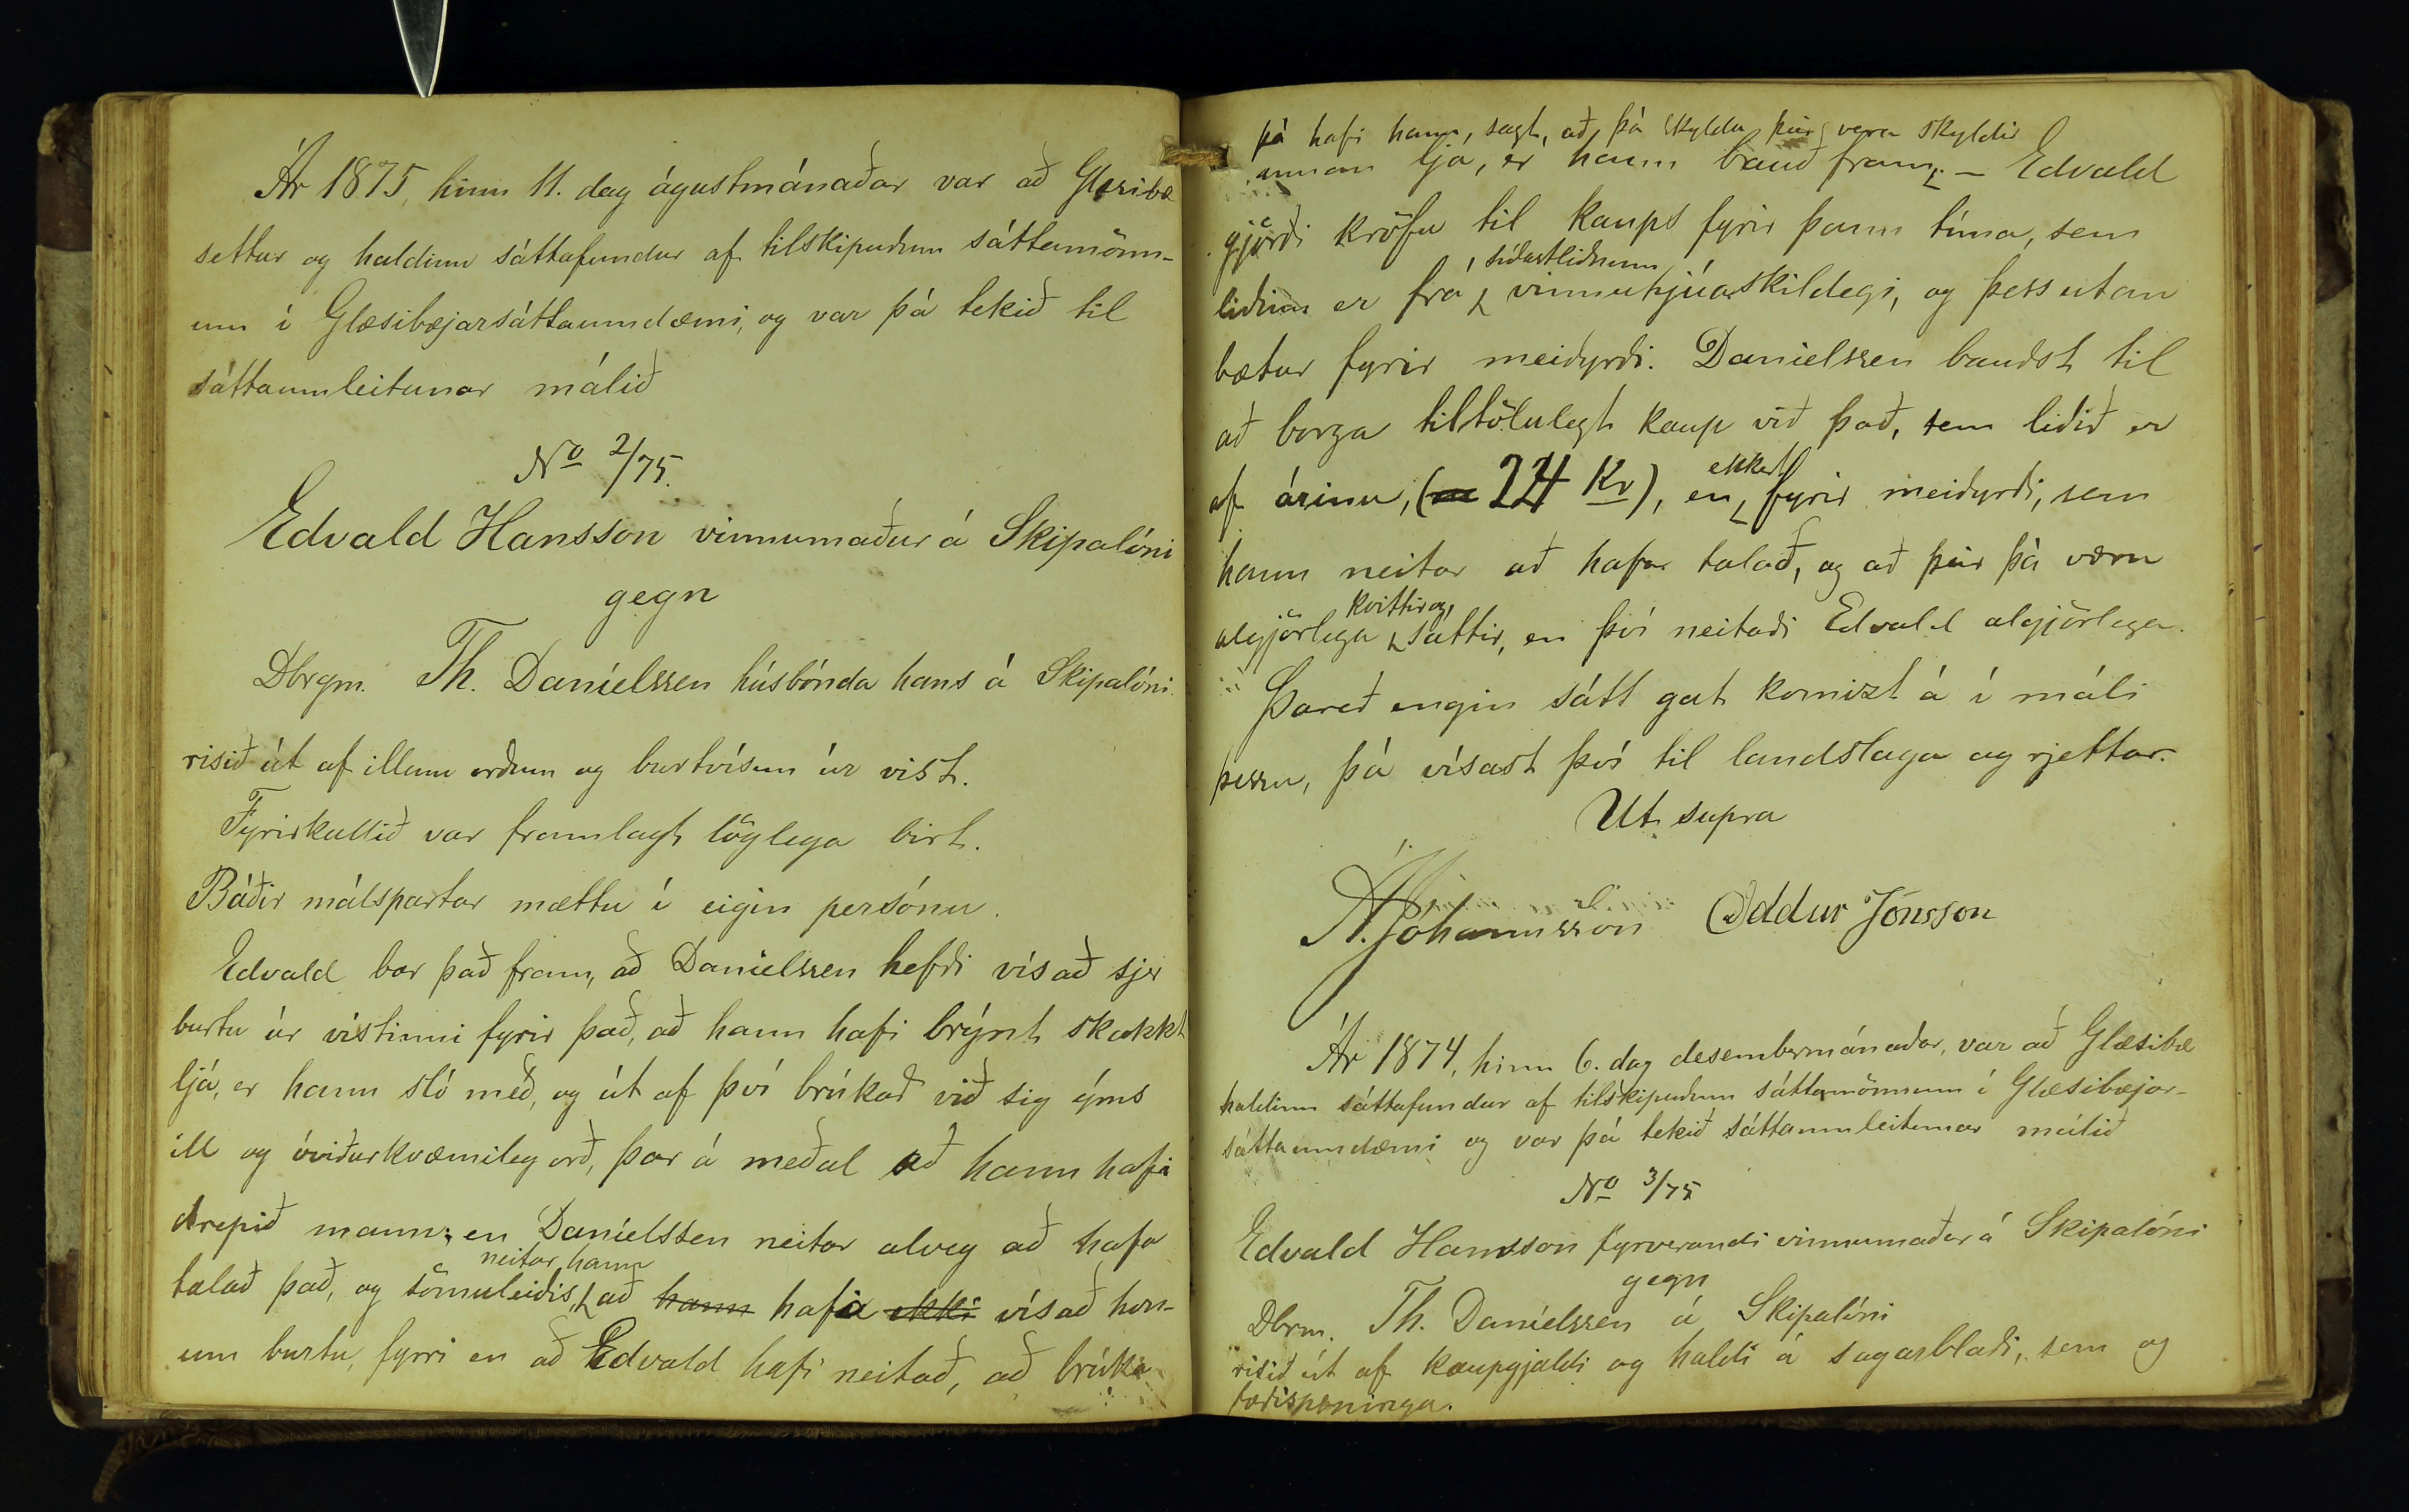 Ár 1875, hinn 11. dag ágústmánaðar var að Glæsibæ
settur og haldinn sáttafundur af tilskipuðum sáttamönn-
um í Glæsibæjarsáttaumdæmi, og var þá tekið til
sáttaumleitunar málið
No 2/75.
Edvald Hansson vinnumaður á Skipalóni
gegn
Dbrgm. Th. Daníelssen húsbónda hans á Skipalóni.
risið út af illum orðum og burtvísun úr vist.
Fyrirkallið var framlagt löglega birt.
Báðir málspartar mættu í eigin persónu.
Edvald bar það fram, að Daníelssen hefði vísað sjer
burtu úr vistinni fyrir það, að hann hafi brýnt skakkt
ljá, er hann sló með, og út af því brúkað við sig ýms
ill og óviðurkvæmileg orð, þar á meðal að hann hafi
drepið mann; en Daníelssen neitar alveg að hafa
neitar hann
talað það, og sömuleiðis, að hann hafa ekki vísað hon-
um burtu, fyrri en að Edvald hafi neitað, að brúka
þá hafi hann, sagt, að þá skyldu þeir vera skyldir
annan ljá, er hann bauð fram. – Edvald
gjörði kröfu til kaups fyrir þann tíma, sem
síðastliðnum
liðinn er frá vinnuhjúaskildegi, og þess utan
bætur fyrir meiðyrði. Daníelssen baudst til
að borga tiltölulegt kaup við það, sem liðið er
ekkert
af árinu, (24 Kr), en fyrir meiðyrði, sem
hann neitar að hafa talað, og að þeir þá væru
kvittir og
algjörlega sáttir, en því neitaði Edvald algjörlega.
Þareð engin sátt gat komizt á í máli
þessu, þá vísast því til landslaga og rjettar.
Ut supra
Á. Jóhannsson Oddur Jónsson
Ár 1874, hinn 6. dag desembermánaðar, var að Glæsibæ
haldinn sáttafundur af tilskipuðum sáttamönnum í Glæsibæjar-
sáttaumdæmi og var þá tekið sáttaumleitunar málið
No 3/75
Edvald Hansson fyrverandi vinnumaður á Skipalóni
gegn
Dbrm. Th. Daníelssen á Skipalóni
risið út af kaupgjaldi og haldi á sagarblaði, sem og
fæðispeninga.